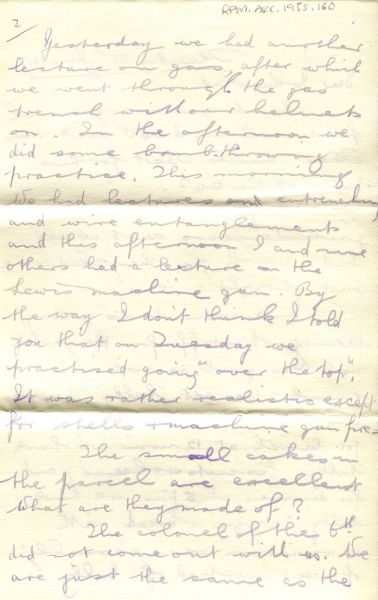 RPM. AEC. 1985. 160
2/
Yesterday we had another
lecture on gas, after which
we went through the gas
trench with our helmets
on. In the afternoon we
did some bomb-throwing
practice. This morning
we had lectures on entrenching
and wire entanglements
and this afternoon I and nine
others had a lecture on the
Lewis machine gun. By
the way I don't think I told
you that on Tuesday we
practised going "over the top".
It was rather realistic except
for shells & machine gun fire.
The small cakes in
the parcel are excellent
What are they made of?
The colonel of the 6th
did not come out with us. We
are just the same as the